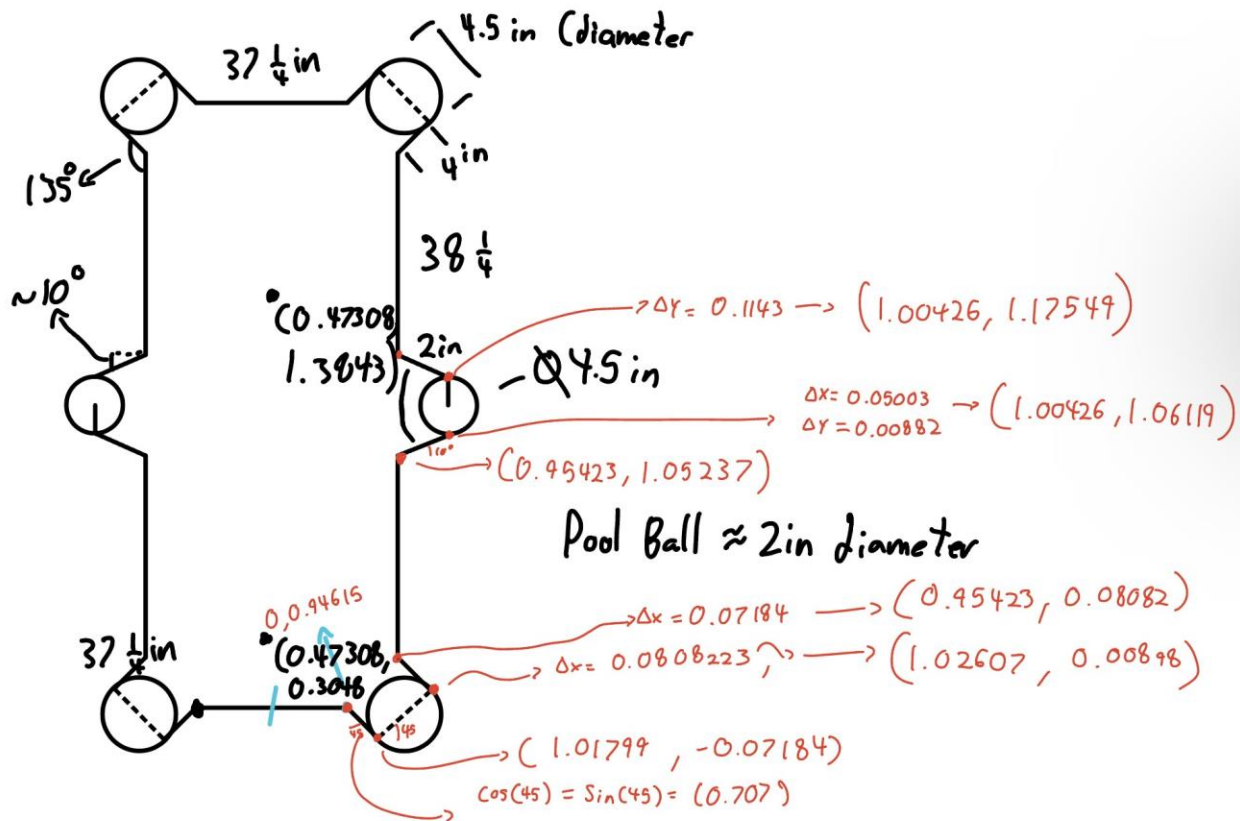 4.5 in (diameter
37 1/4 in
4 in
135°
38 1/4
~10°
(0.47308
1.3843)
2in
Ø 4.5 in
ΔY = 0.1143 → (1.00426, 1.17549)
Δx = 0.05003
ΔY = 0.00882 → (1.00426, 1.06119)
110°
(0.95423, 1.05237)
Pool Ball ≈ 2in diameter
0,0.94615
37 1/4 in
(0.47308,
0.3048
Δx = 0.07184 → (0.95423, 0.08082)
Δx = 0.0808223, → (1.02607, 0.00898)
45
45
(1.01799, -0.07184)
Cos(45) = Sin(45) = (0.707)